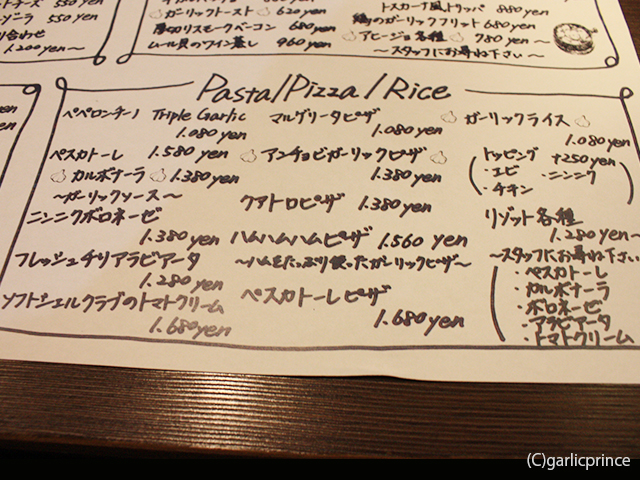 550 yen
ガーリックトースト 620 yen
550 yen
厚切りスモークベーコン 680 yen
り合わせ
1.200 yen〜
ムール貝のワイン蒸し 960 yen
トスカーナ風トリッパ 880 yen
鶏のガーリックフリット 680 yen
アヒージョ各種 780 yen〜
〜スタッフにお尋ね下さい〜
Pasta/Pizza/Rice
ペペロンチーノ Triple Garlic
1.080 yen
ペスカトーレ 1.580 yen
カルボナーラ 1.380 yen
〜ガーリックソース〜
ニンニクボロネーゼ
1.380 yen
フレッシュチリアラビアータ
1.280 yen
ソフトシェルクラブのトマトクリーム
1.680 yen
マルゲリータピザ
1.080 yen
アンチョビガーリックピザ
1.380 yen
クアトロピザ 1.380 yen
ハムハムハムピザ 1.560 yen
〜ハムをたっぷり使ったガーリックピザ〜
ペスカトーレピザ
1.680 yen
ガーリックライス
1.080 yen
トッピング +250 yen
・エビ ・ニンニク
・チキン
リゾット各種
1.280 yen〜
〜スタッフにお尋ね下さい〜
・ペスカトーレ
・カルボナーラ
・ボロネーゼ
・アラビアータ
・トマトクリーム
(C)garlicprince